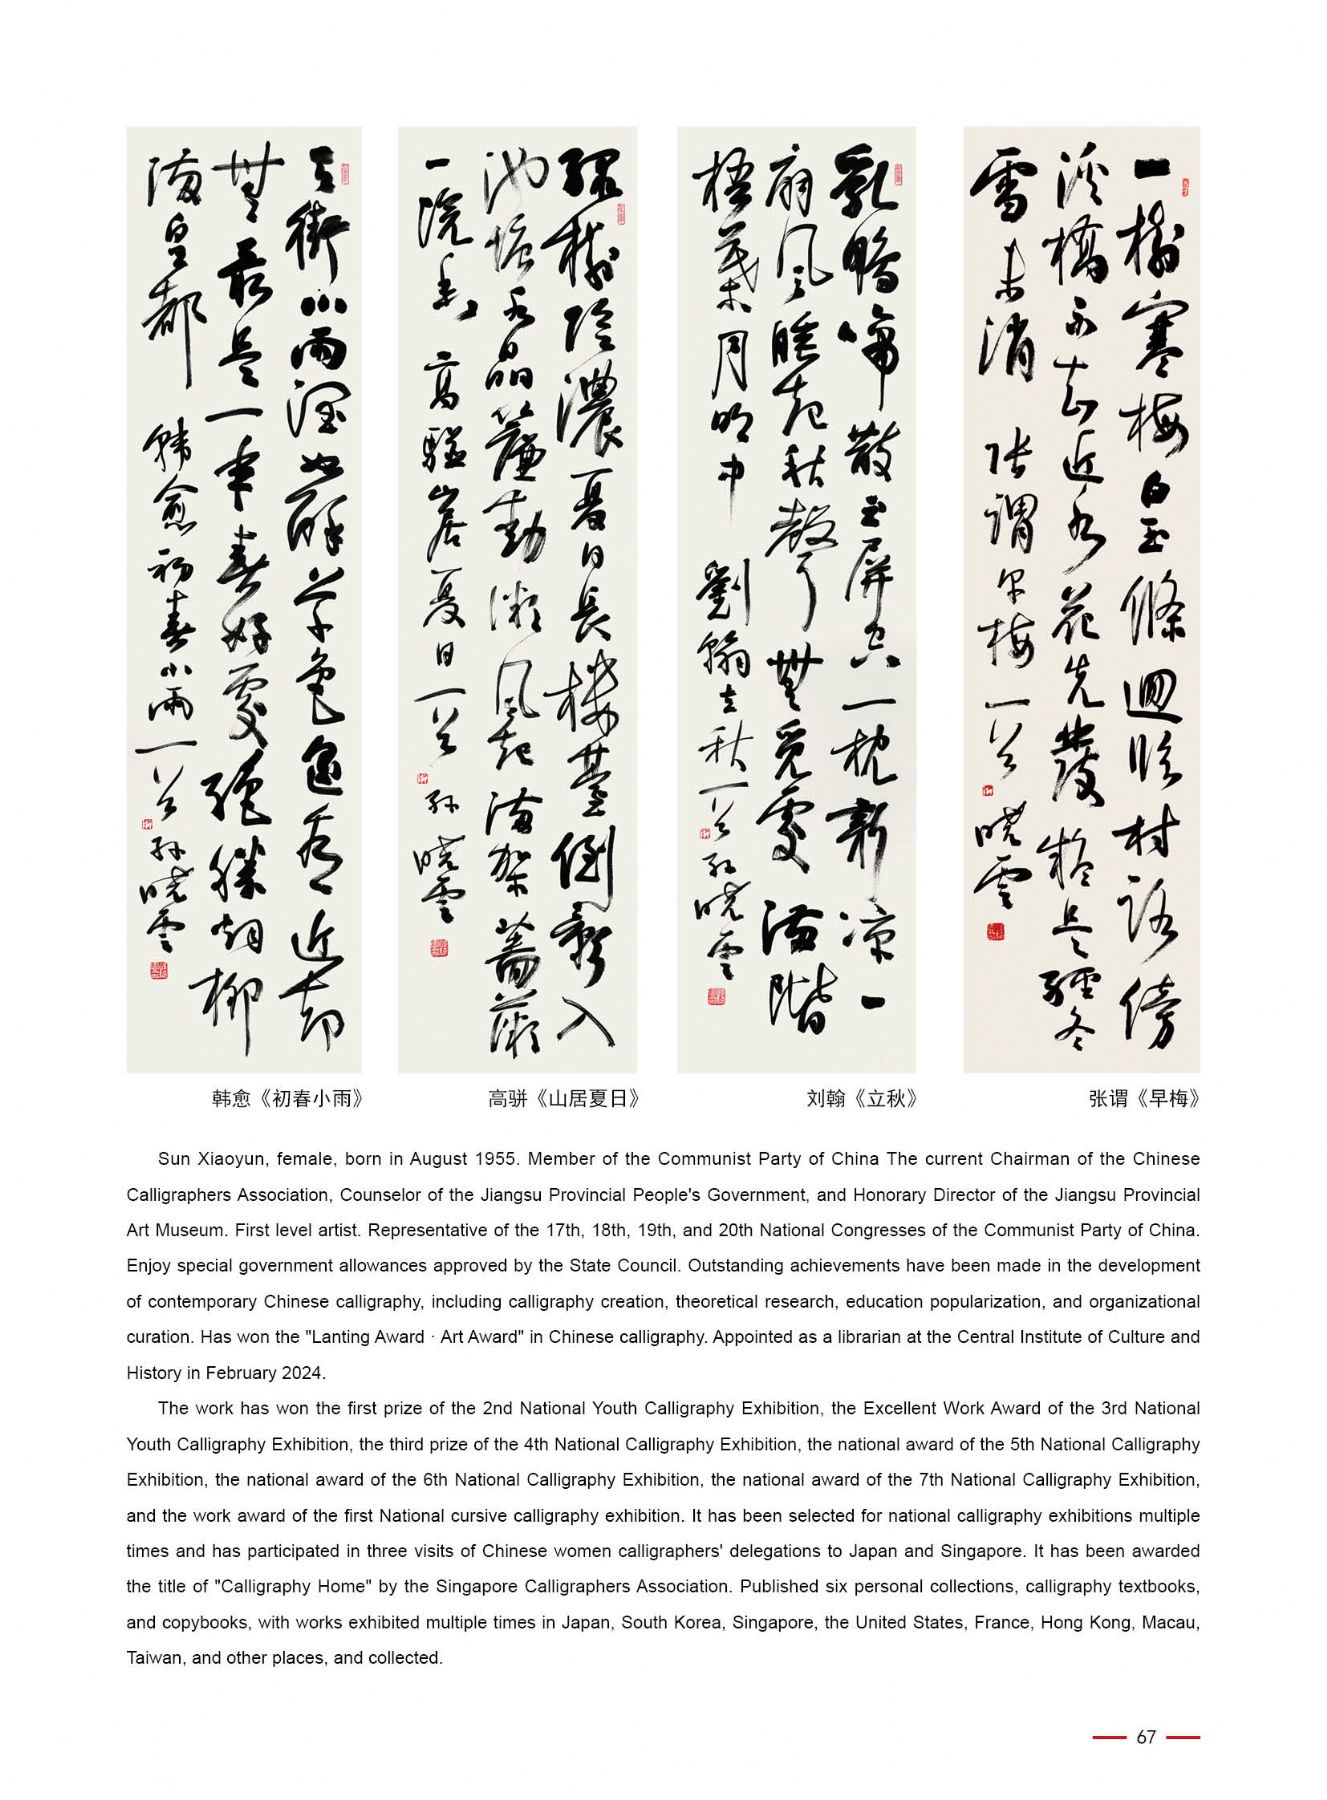 天街小雨潤如酥草色遙看近却
無最是一年春好處絕勝烟柳
滿皇都
韓愈初春小雨一首
孫曉雲
綠樹陰濃夏日長樓臺倒影入
池塘水晶簾動微風起滿架薔薇
一院香
高駢山居夏日一首
孫曉雲
乳鴉啼散玉屏空一枕新凉一
扇風睡起秋聲無覓處滿階
梧葉月明中
劉翰立秋一首
孫曉雲
一樹寒梅白玉條迴臨村路傍
溪橋不知近水花先發疑是經冬
雪未消
張謂早梅一首
曉雲
韩愈《初春小雨》
高骈《山居夏日》
刘翰《立秋》
张谓《早梅》
Sun Xiaoyun, female, born in August 1955. Member of the Communist Party of China The current Chairman of the Chinese
Calligraphers Association, Counselor of the Jiangsu Provincial People's Government, and Honorary Director of the Jiangsu Provincial
Art Museum. First level artist. Representative of the 17th, 18th, 19th, and 20th National Congresses of the Communist Party of China.
Enjoy special government allowances approved by the State Council. Outstanding achievements have been made in the development
of contemporary Chinese calligraphy, including calligraphy creation, theoretical research, education popularization, and organizational
curation. Has won the "Lanting Award · Art Award" in Chinese calligraphy. Appointed as a librarian at the Central Institute of Culture and
History in February 2024.
The work has won the first prize of the 2nd National Youth Calligraphy Exhibition, the Excellent Work Award of the 3rd National
Youth Calligraphy Exhibition, the third prize of the 4th National Calligraphy Exhibition, the national award of the 5th National Calligraphy
Exhibition, the national award of the 6th National Calligraphy Exhibition, the national award of the 7th National Calligraphy Exhibition,
and the work award of the first National cursive calligraphy exhibition. It has been selected for national calligraphy exhibitions multiple
times and has participated in three visits of Chinese women calligraphers' delegations to Japan and Singapore. It has been awarded
the title of "Calligraphy Home" by the Singapore Calligraphers Association. Published six personal collections, calligraphy textbooks,
and copybooks, with works exhibited multiple times in Japan, South Korea, Singapore, the United States, France, Hong Kong, Macau,
Taiwan, and other places, and collected.
67